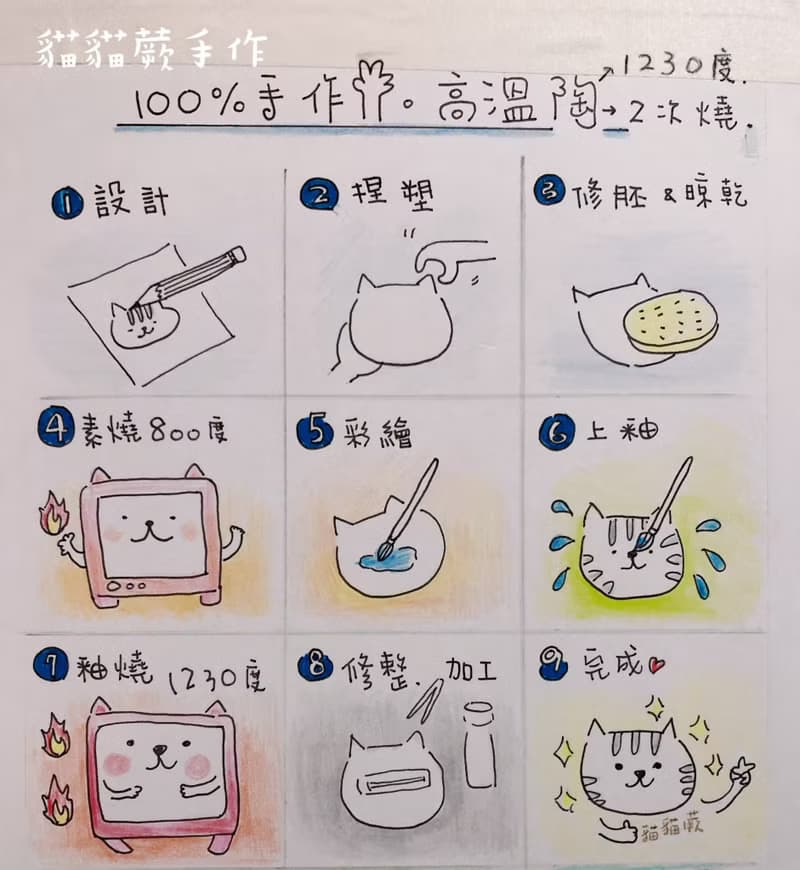 貓貓蕨手作
100%手作。高溫陶→1230度.
→2次燒.
1 設計
2 捏塑
3 修胚&晾乾
4 素燒800度
5 彩繪
6 上釉
7 釉燒 1230度
8 修整.加工
9 完成
貓貓蕨